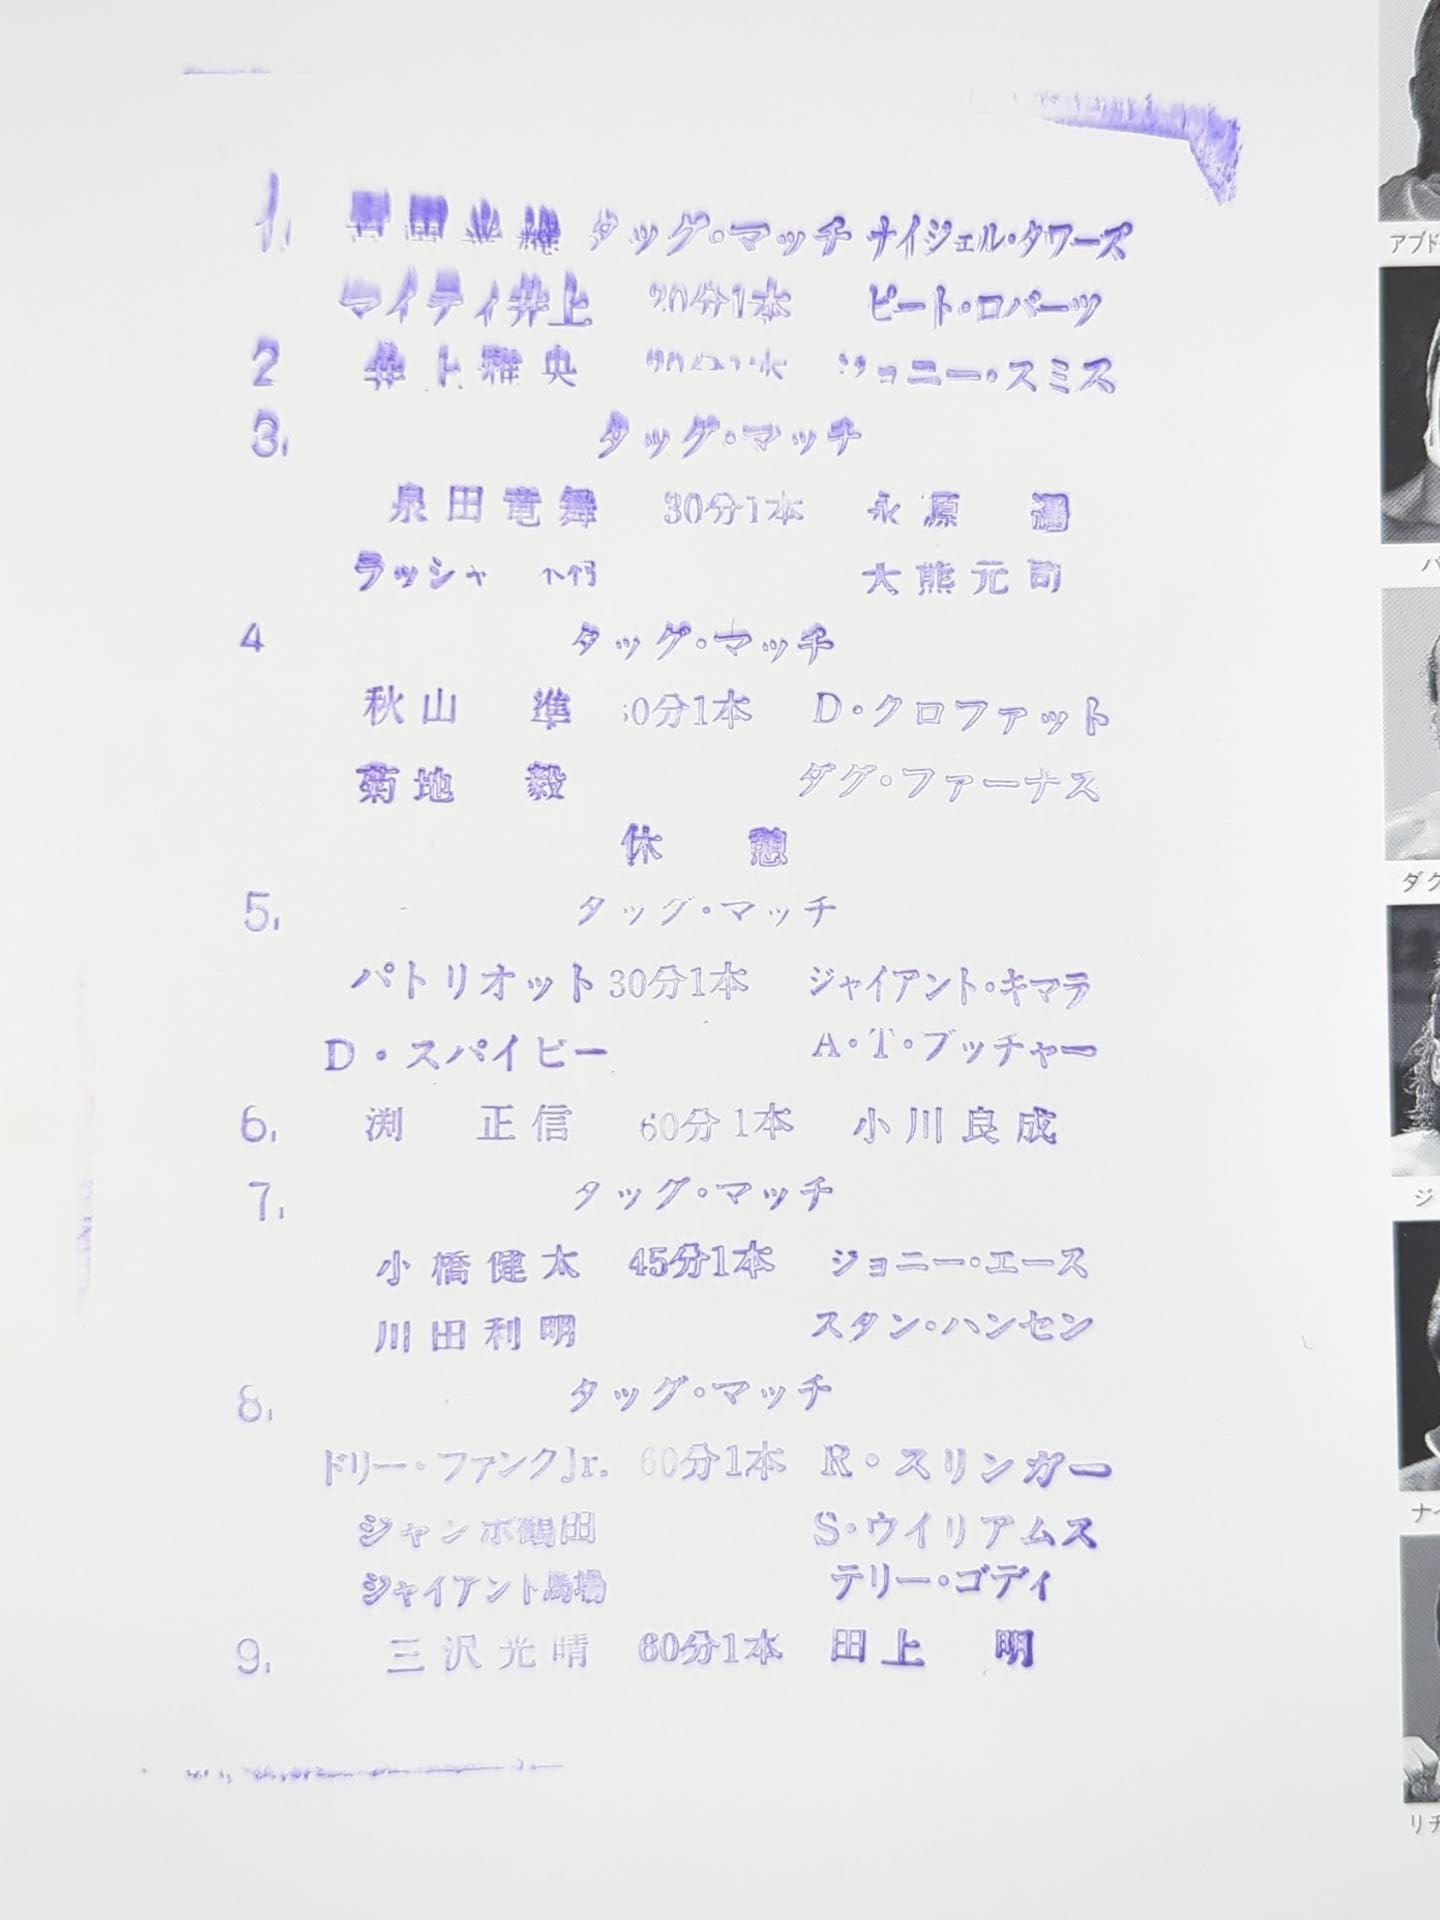 1. 百田光雄 タッグ・マッチ ナイジェル・タワーズ
マイティ井上 20分1本 ピート・ロバーツ
2 井上雅央 20分1本 ジョニー・スミス
3. タッグ・マッチ
泉田竜舞 30分1本 永源 遥
ラッシャー木村 大熊元司
4 タッグ・マッチ
秋山 準 30分1本 D・クロファット
菊地 毅 ダグ・ファーナス
休 憩
5. タッグ・マッチ
パトリオット 30分1本 ジャイアント・キマラ
D・スパイビー A・T・ブッチャー
6. 渕 正信 60分1本 小川良成
7. タッグ・マッチ
小橋健太 45分1本 ジョニー・エース
川田利明 スタン・ハンセン
8. タッグ・マッチ
ドリー・ファンクJr. 60分1本 R・スリンガー
ジャンボ鶴田 S・ウイリアムス
ジャイアント馬場 テリー・ゴディ
9. 三沢光晴 60分1本 田上 明
アブド
パ
ダグ
ジ
ナイ
リチ